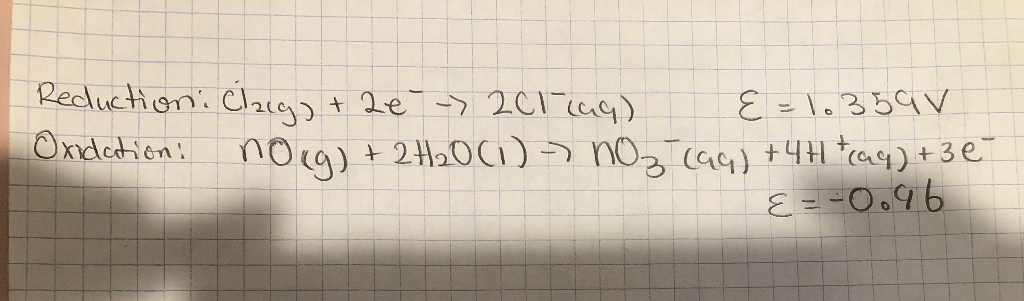 Reduction: Cl2(g) + 2e⁻ → 2Cl⁻(aq) ε = 1.359V
Oxidation: nO(g) + 2H2O(l) → nO3⁻(aq) + 4H⁺(aq) + 3e⁻
ε = -0.96